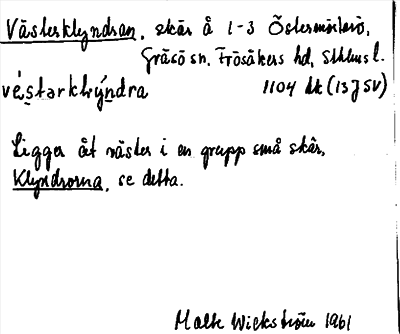 Västerklyndran, skär å 1-3 Östermörtarö,
Gräsö sn, Frösåkers hd, Sthlms l.
véstarklýndra 1104 bk (13 J SV)
Ligger åt väster i en grupp små skär,
Klyndrorna, se detta.
Malte Wickström 1961